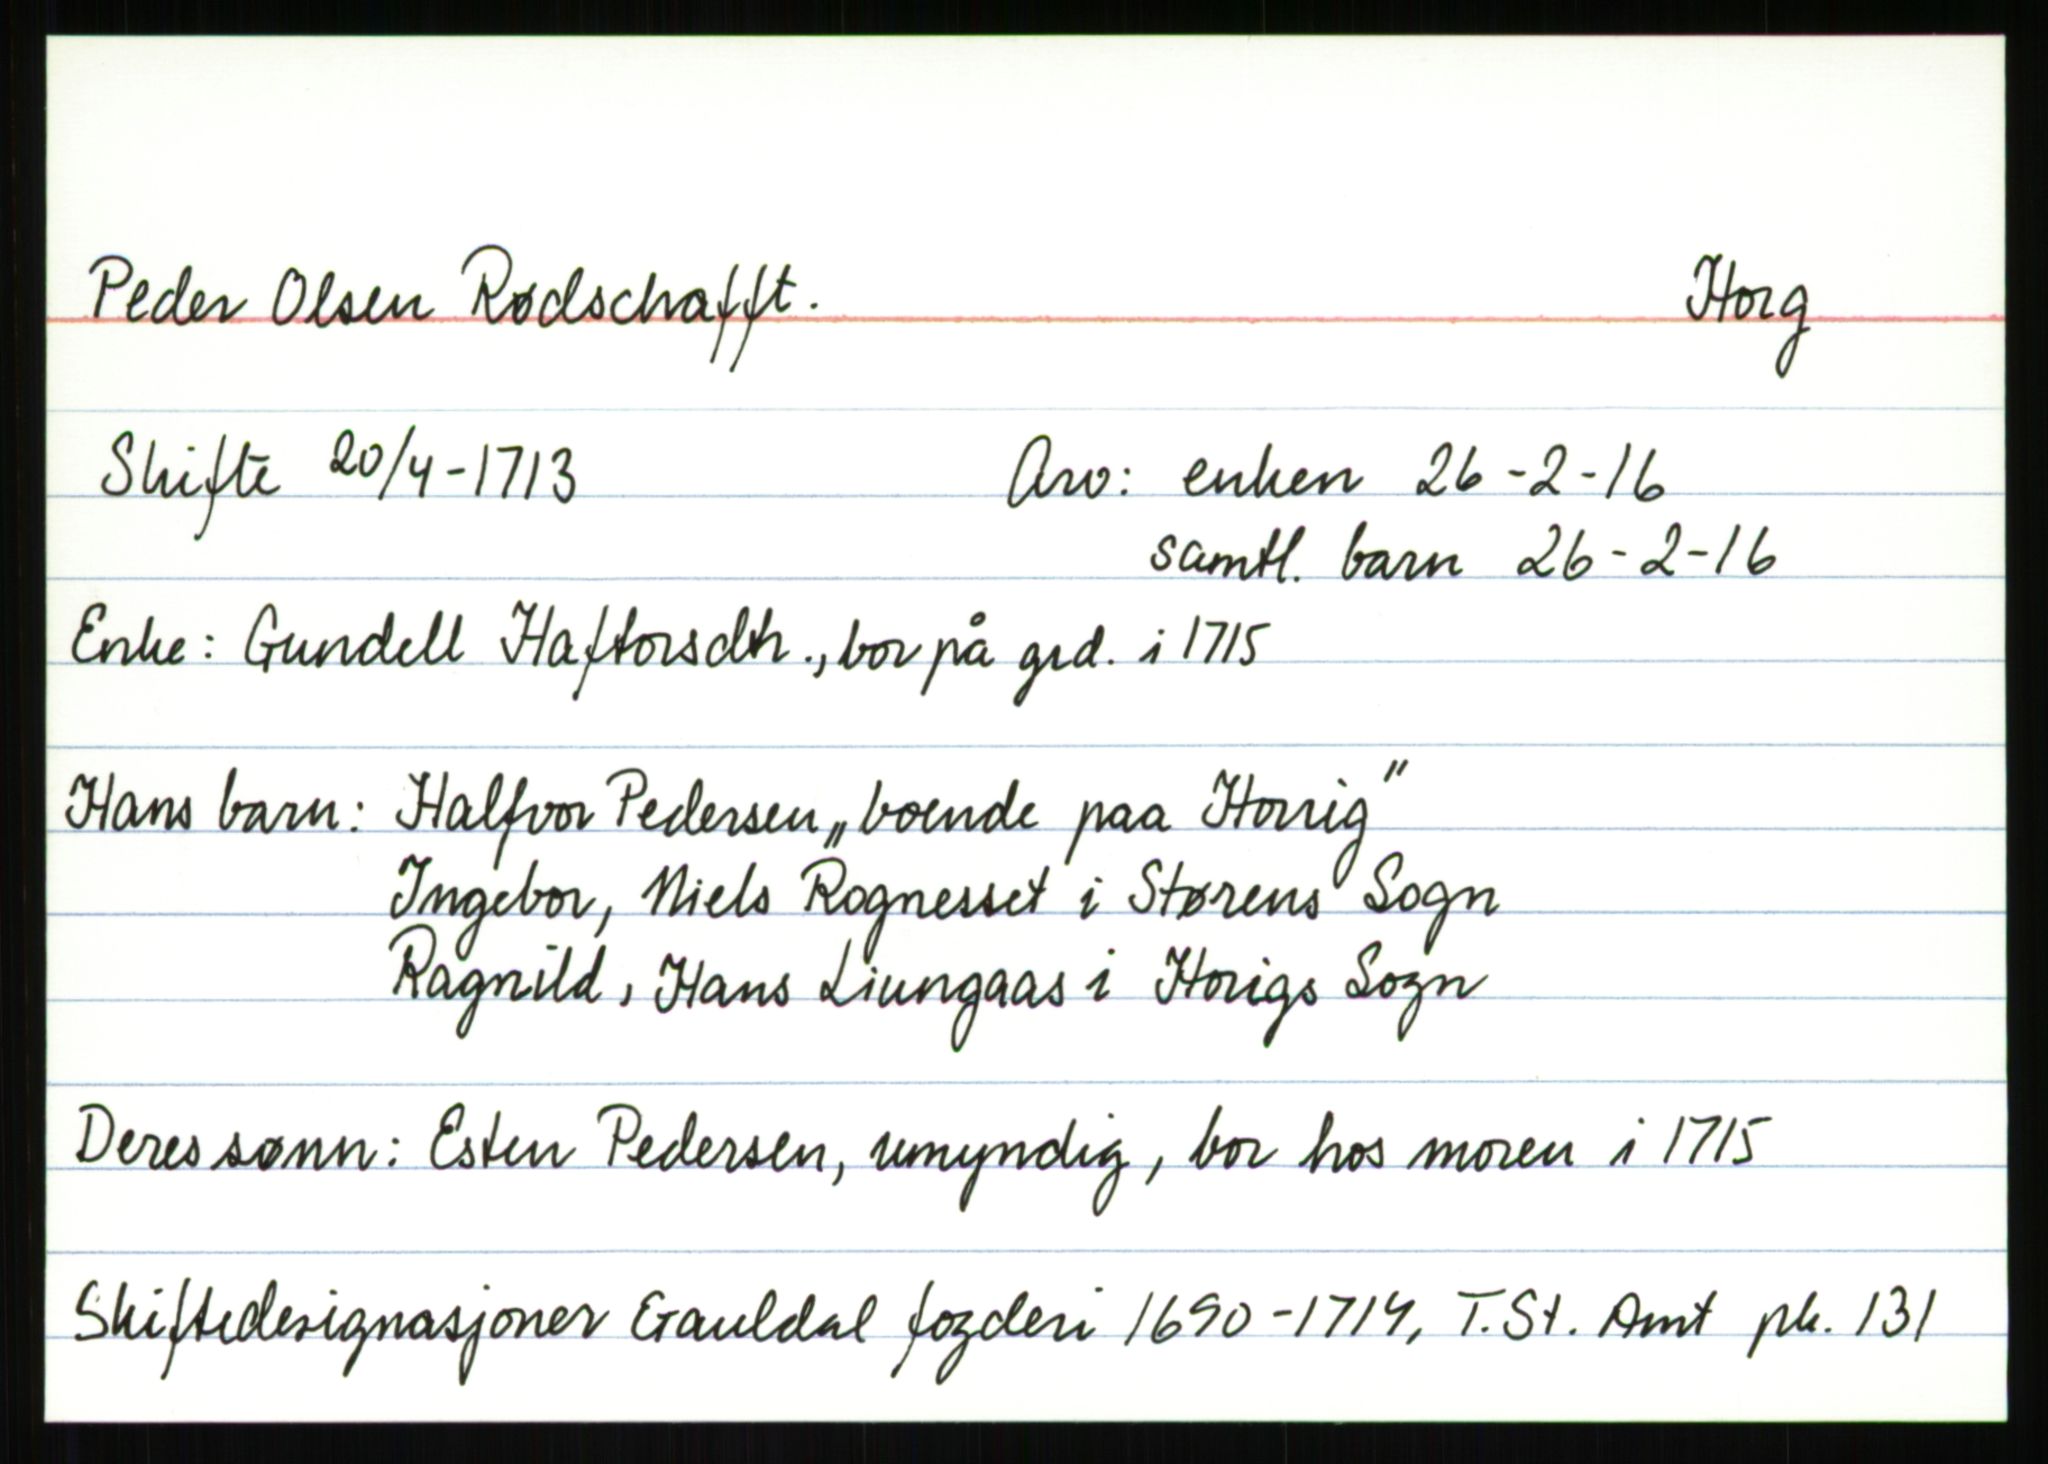 Peder Olsen Rødschafft. Horg
Skifte 20/4-1713 Arv: enken 26-2-16
samtl. barn 26-2-16
Enke: Gundell Haftorsdtr., bor på grd. i 1715
Hans barn: Halfvor Pedersen „boende paa Horrig”
Ingebor, Niels Rognesset i Størens Sogn
Ragnild, Hans Liungaas i Horigs Sogn
Deres sønn: Esten Pedersen, umyndig, bor hos moren i 1715
Skiftedesignasjoner Gauldal fogderi 1690-1714, T. St. Amt pk. 131